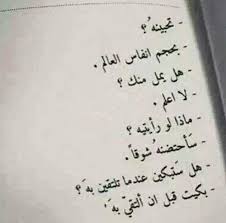 - تحبينهُ ؟
- بحجم انفاس العالم .
- هل يمل منك ؟
- لا اعلم .
- ماذا لو رأيتيه ؟
- سَأحتضنهُ شوقاً .
- هل ستبكين عندما تلتقين بهَ ؟
- بكيت قبل ان ألتقيّ به .